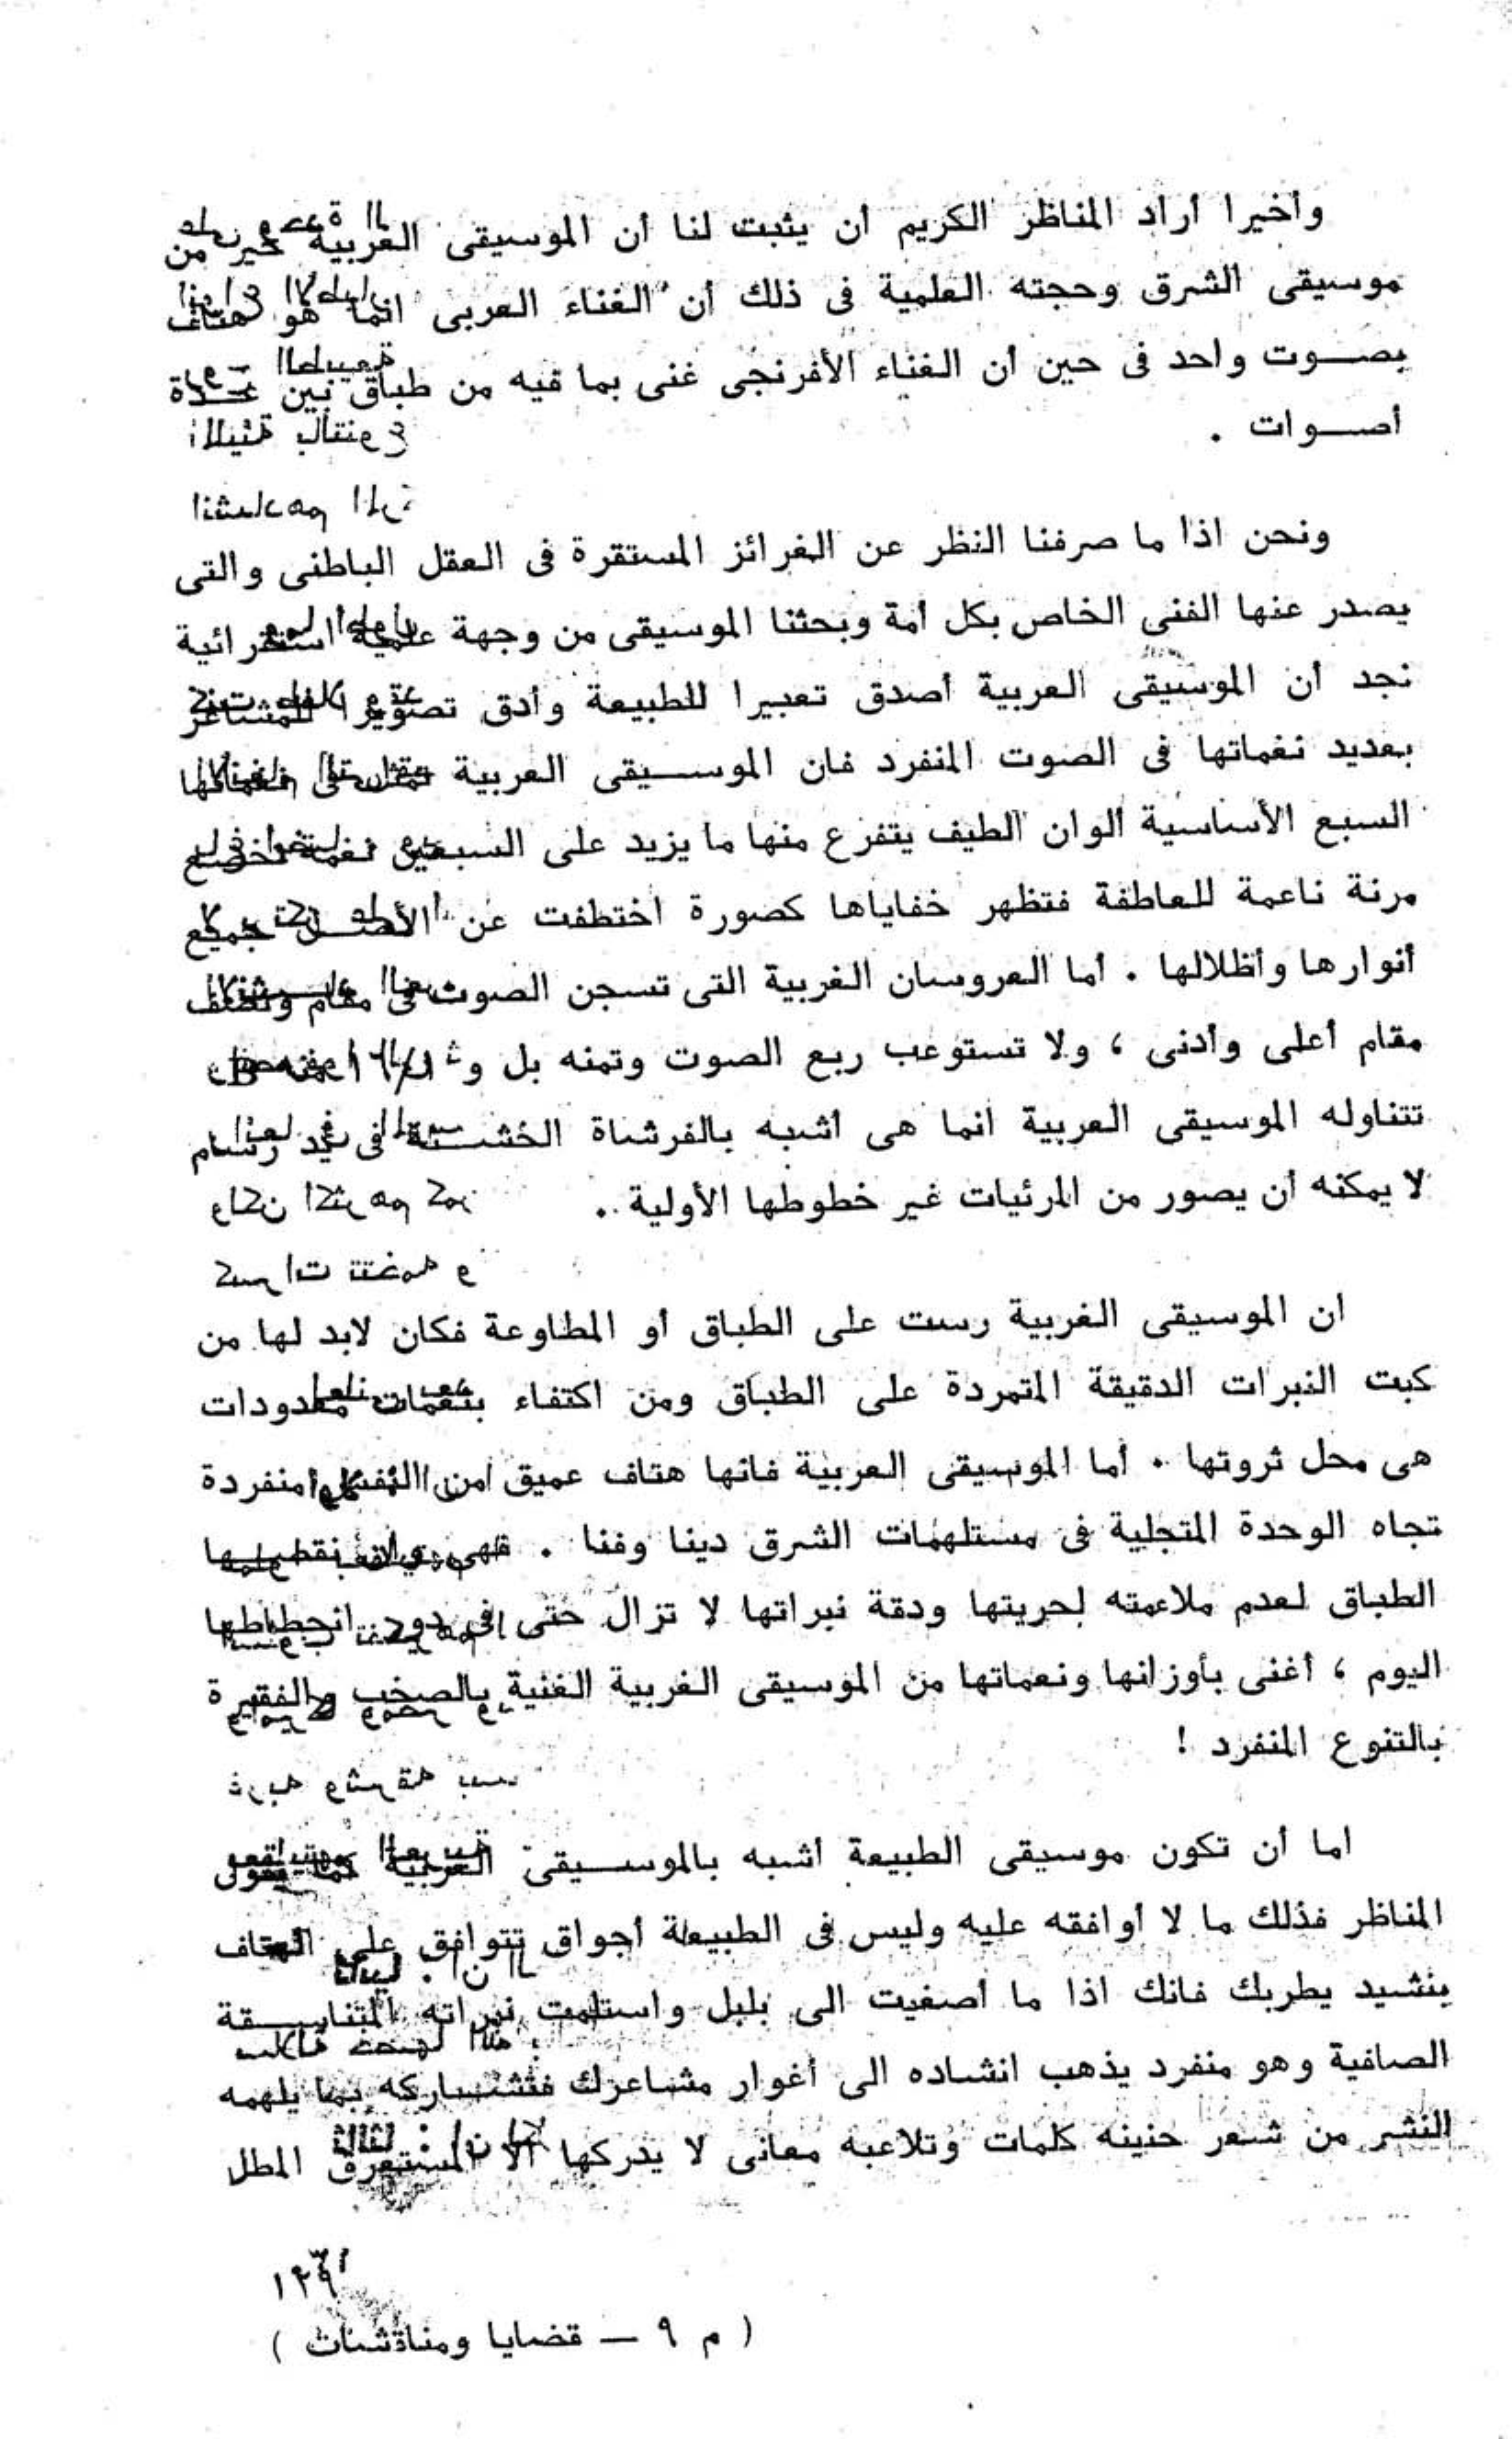 وأخيرا أراد المناظر الكريم أن يثبت لنا أن الموسيقى الغربية خير من
موسيقى الشرق وحجته العلمية فى ذلك أن الغناء العربى انما هو هتاف
بصوت واحد فى حين أن الغناء الأفرنجى غنى بما فيه من طباق بين عدة
أصوات .
ونحن اذا ما صرفنا النظر عن الغرائز المستقرة فى العقل الباطنى والتى
يصدر عنها الفنى الخاص بكل أمة وبحثنا الموسيقى من وجهة علمية استقرائية
نجد أن الموسيقى العربية أصدق تعبيرا للطبيعة وأدق تصويرا للمشاعر
بعديد نغماتها فى الصوت المنفرد فان الموسيقى العربية تمثل فى نغماتها
السبع الأساسية ألوان الطيف يتفرع منها ما يزيد على السبعين نغمة تخضع
مرنة ناعمة للعاطفة فتظهر خفاياها كصورة اختطفت عن الأصل جميع
أنوارها وأظلالها . أما العروسان الغربية التى تسجن الصوت فى مقام ونصف
مقام أعلى وأدنى ، ولا تستوعب ربع الصوت وثمنه بل و ١/١٦ منه
تتناوله الموسيقى العربية انما هى أشبه بالفرشاة الخشنة فى يد رسام
لا يمكنه أن يصور من المرئيات غير خطوطها الأولية ..
ان الموسيقى الغربية رست على الطباق أو المطاوعة فكان لابد لها من
كبت النبرات الدقيقة المتمردة على الطباق ومن اكتفاء بنغمات معدودات
هى محل ثروتها . أما الموسيقى العربية فانها هتاف عميق من النفس منفردة
تجاه الوحدة المتجلية فى مستلهمات الشرق دينا وفنا . فهى وان نقصها
الطباق لعدم ملاءمته لحريتها ودقة نبراتها لا تزال حتى فى دور انحطاطها
اليوم ، أغنى بأوزانها ونعماتها من الموسيقى الغربية الغنية بالصخب والفقيرة
بالتنوع المنفرد !
اما أن تكون موسيقى الطبيعة أشبه بالموسيقى الغربية كما يقول
المناظر فذلك ما لا أوافقه عليه وليس فى الطبيعة أجواق تتوافق على الهتاف
بنشيد يطربك فانك اذا ما أصغيت الى بلبل واستلمت نبراته المتناسقة
الصافية وهو منفرد يذهب انشاده الى أغوار مشاعرك فتشاركه بما يلهمه
النشر من شعر حنينه كلمات وتلاعبه معانى لا يدركها الا المستغرق المطل
( م ٩ – قضايا ومناقشات )